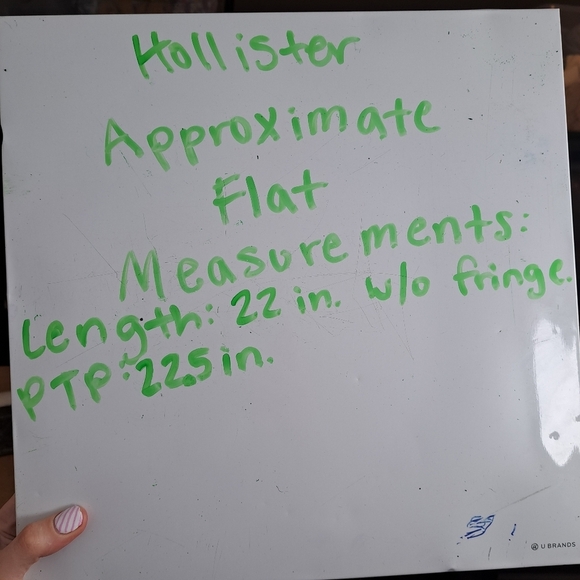 Hollister
Approximate
Flat
Measurements:
Length: 22 in. w/o fringe.
PTP: 22.5 in.
U BRANDS